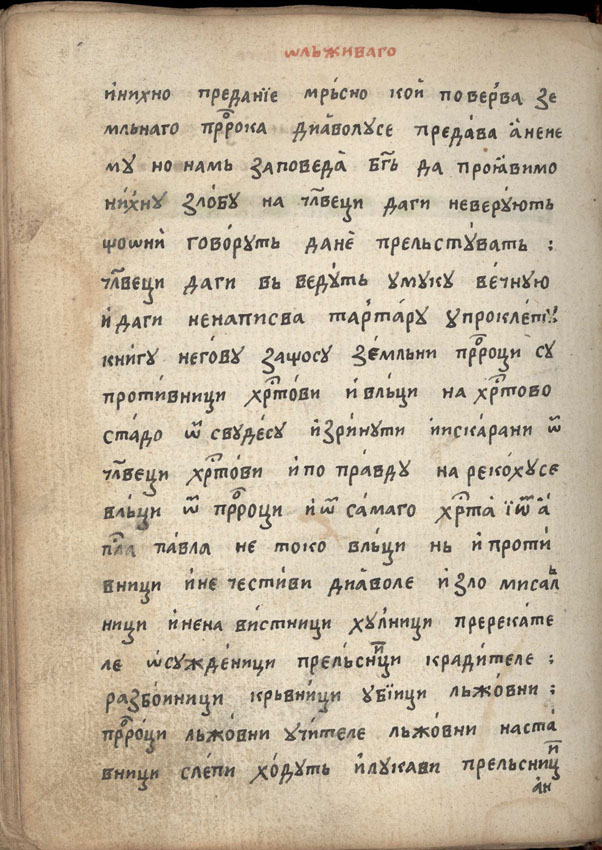 ѡльживаго
и҆нихно преданїе мрьсно кои҆ повер́ва зе
мльнаго прⷪ҇рока диꙗ҆волусе предава а҆нене
му но намь заповеда̀ бг҃ь да проꙗ҆вимо
ни́хну зло́бу на чл҃веци даги неверу́ють
ѱоѡни̏ гово́руть дане̏ прельсту́вать :
чл҃веци даги вь веду́ть умуку ве́чную
и҆даги ненаписва тарта́ру упрокле́ту
кни́гу него́ву заѱосу зе́мльни прⷪ҇роци су
проти́вници хрⷭ҇то́ви и҆вльци на хрⷭ҇тово
ста́до ѿ свуде́су и҆зри́нути и҆искарани ѿ
чл҃веци хрⷭ҇то́ви и҆по пра́вду на реко́хусе
вльци ѿ прⷪ҇роци и҆ѿ са́маго хрⷭ҇та̀ їѿ а҆
пⷭ҇ла павла не токо вльци нь и҆проти́
вници и҆не чести́ви диꙗ҆воле и҆зло мисалⸯ
ници и҆нена ви́стници хулници пререка́те
ле ѡ҆сужде́ници прельсници крадителе :
разбоиници крьвни́ци уби҆ици льжо́вни :
прⷪ҇ро́ци льжо́вни учи́теле льжо́вни наста́
вници сле́пи хо́дуть и҆лукави прельсници
а҆н